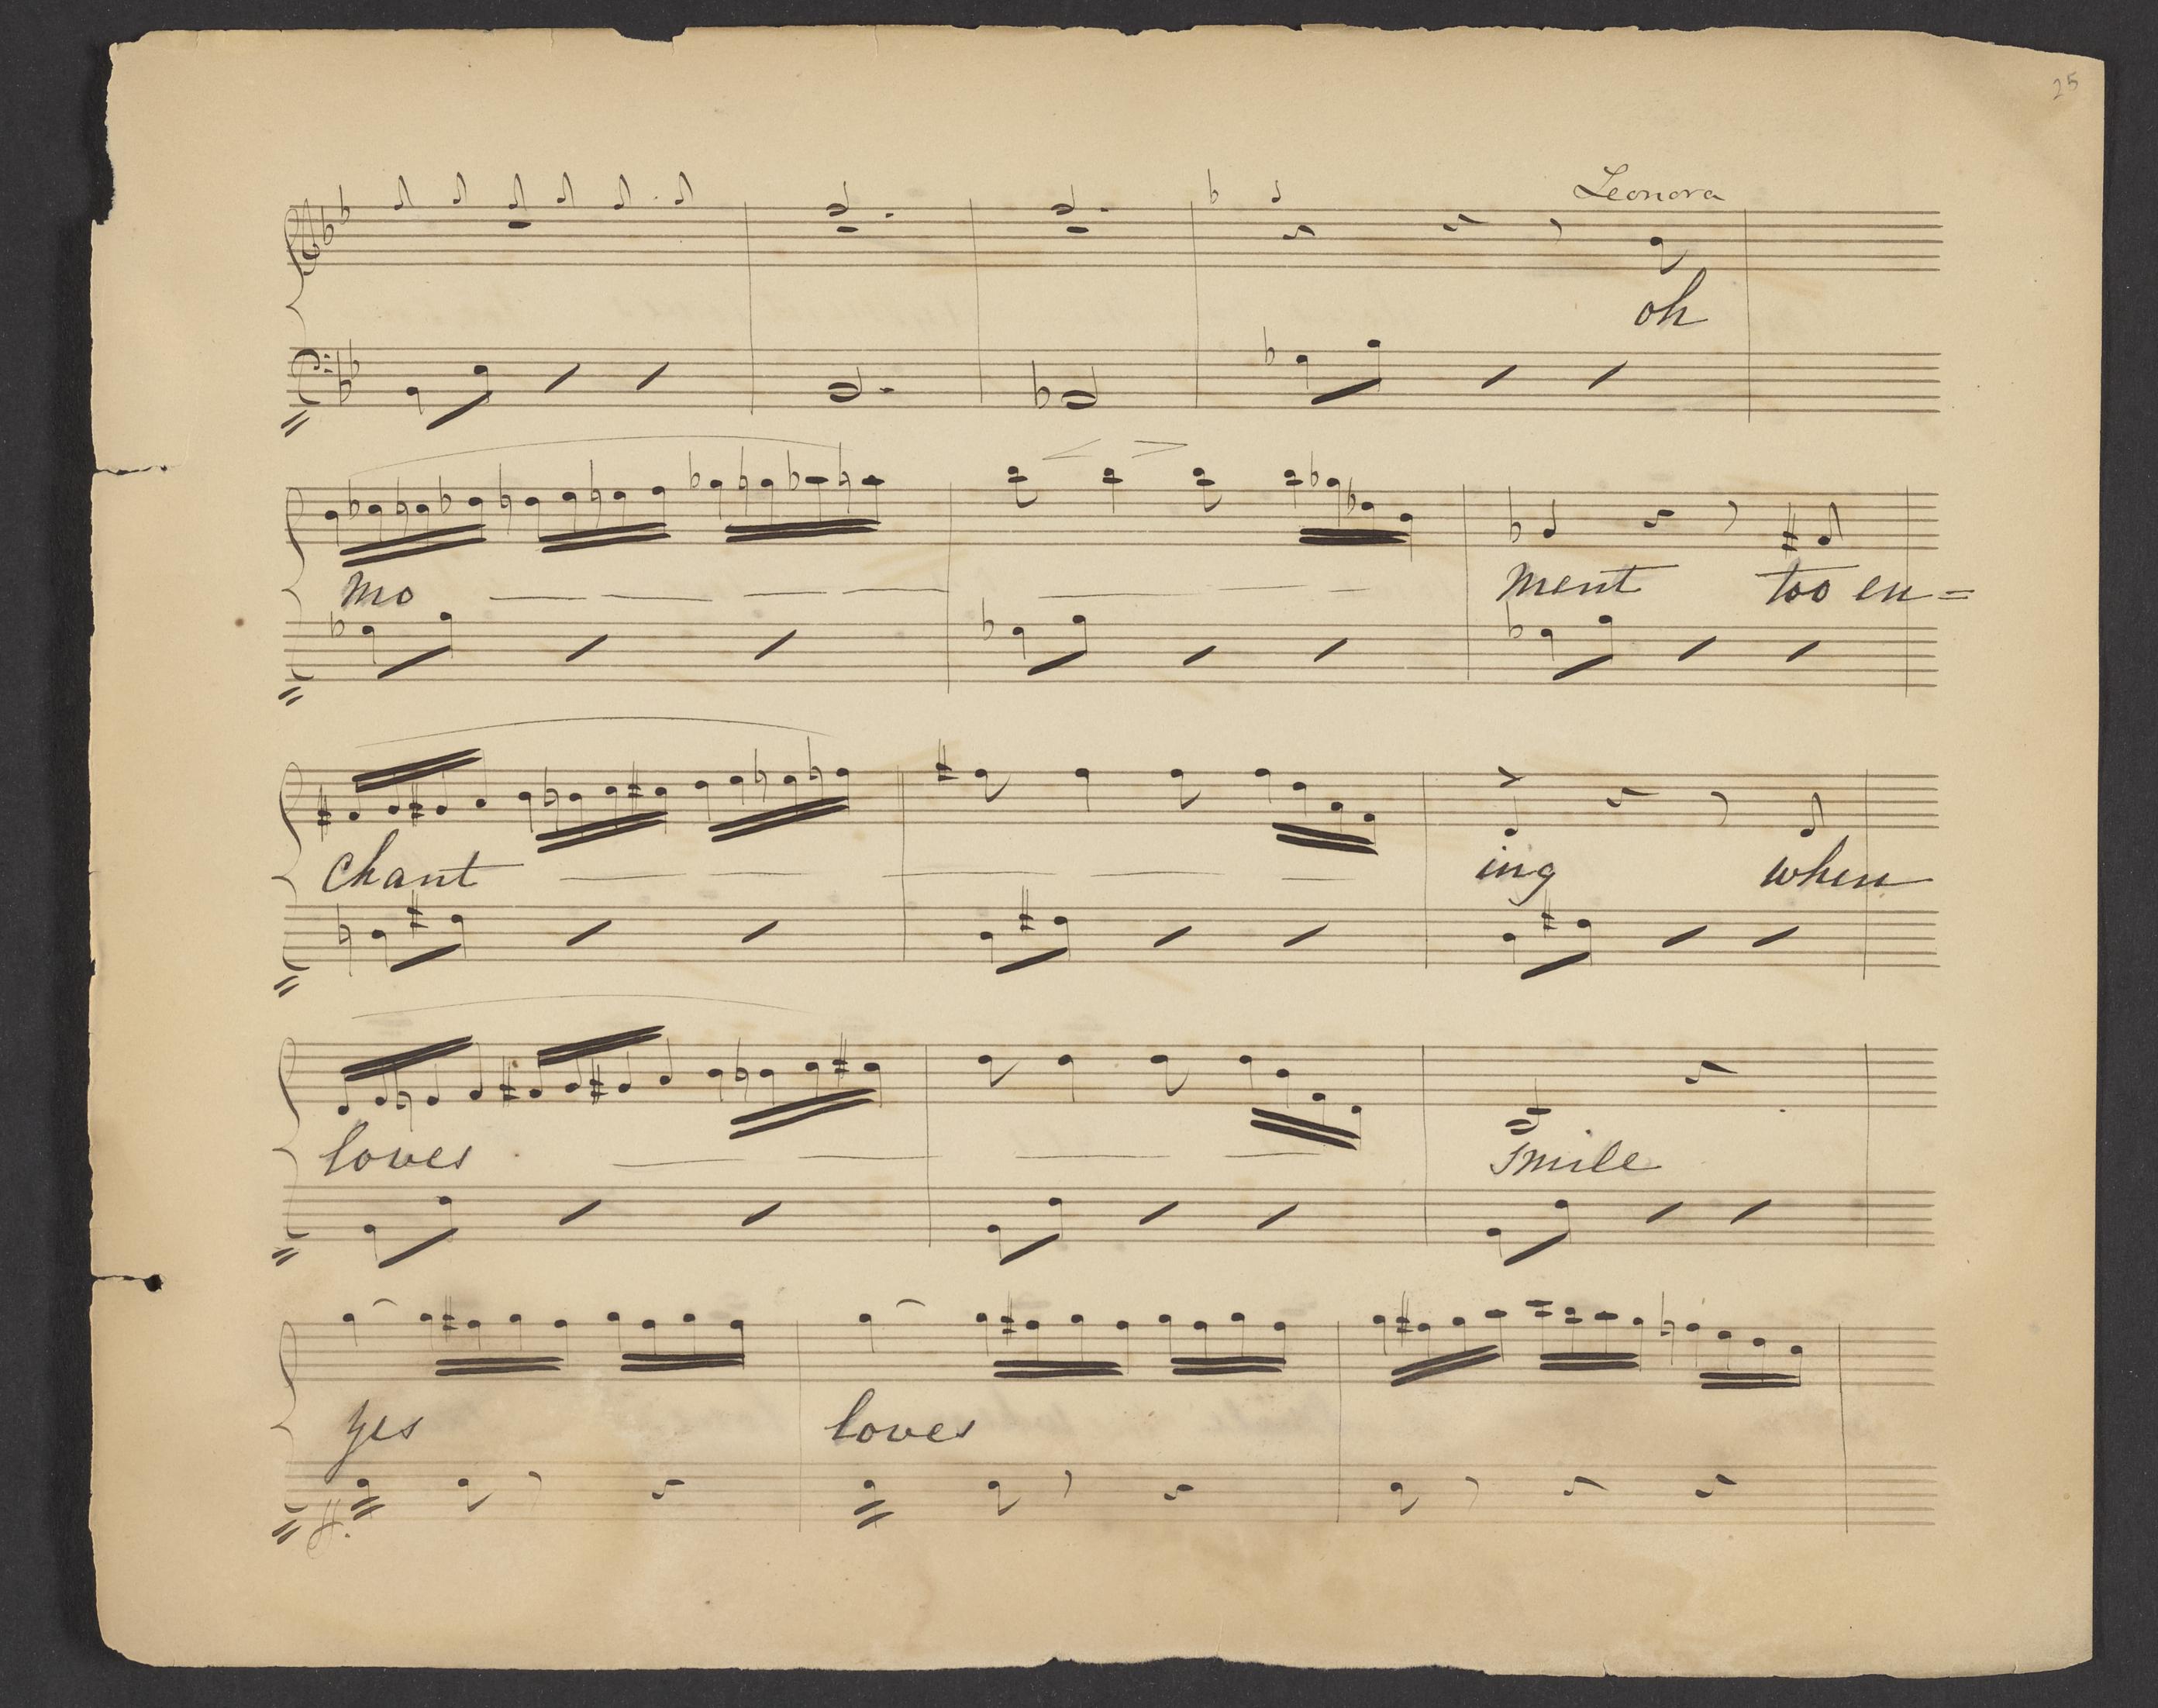 25
Leonora
oh
mo — — — — — — — ment too en=
chant — — — — — — ing when
loves — — — — smile
yes loves
ff.